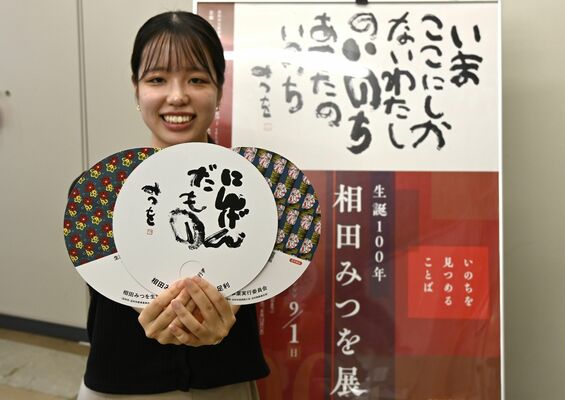 いま
ここにしか
ないわたし
のいのち
あなたの
いのち
みつを
いのちを
見つめる
ことば
生誕100年
相田みつを展
9/1日
にんげん
だもの
みつを
相田みつを
足利
業実行委員会